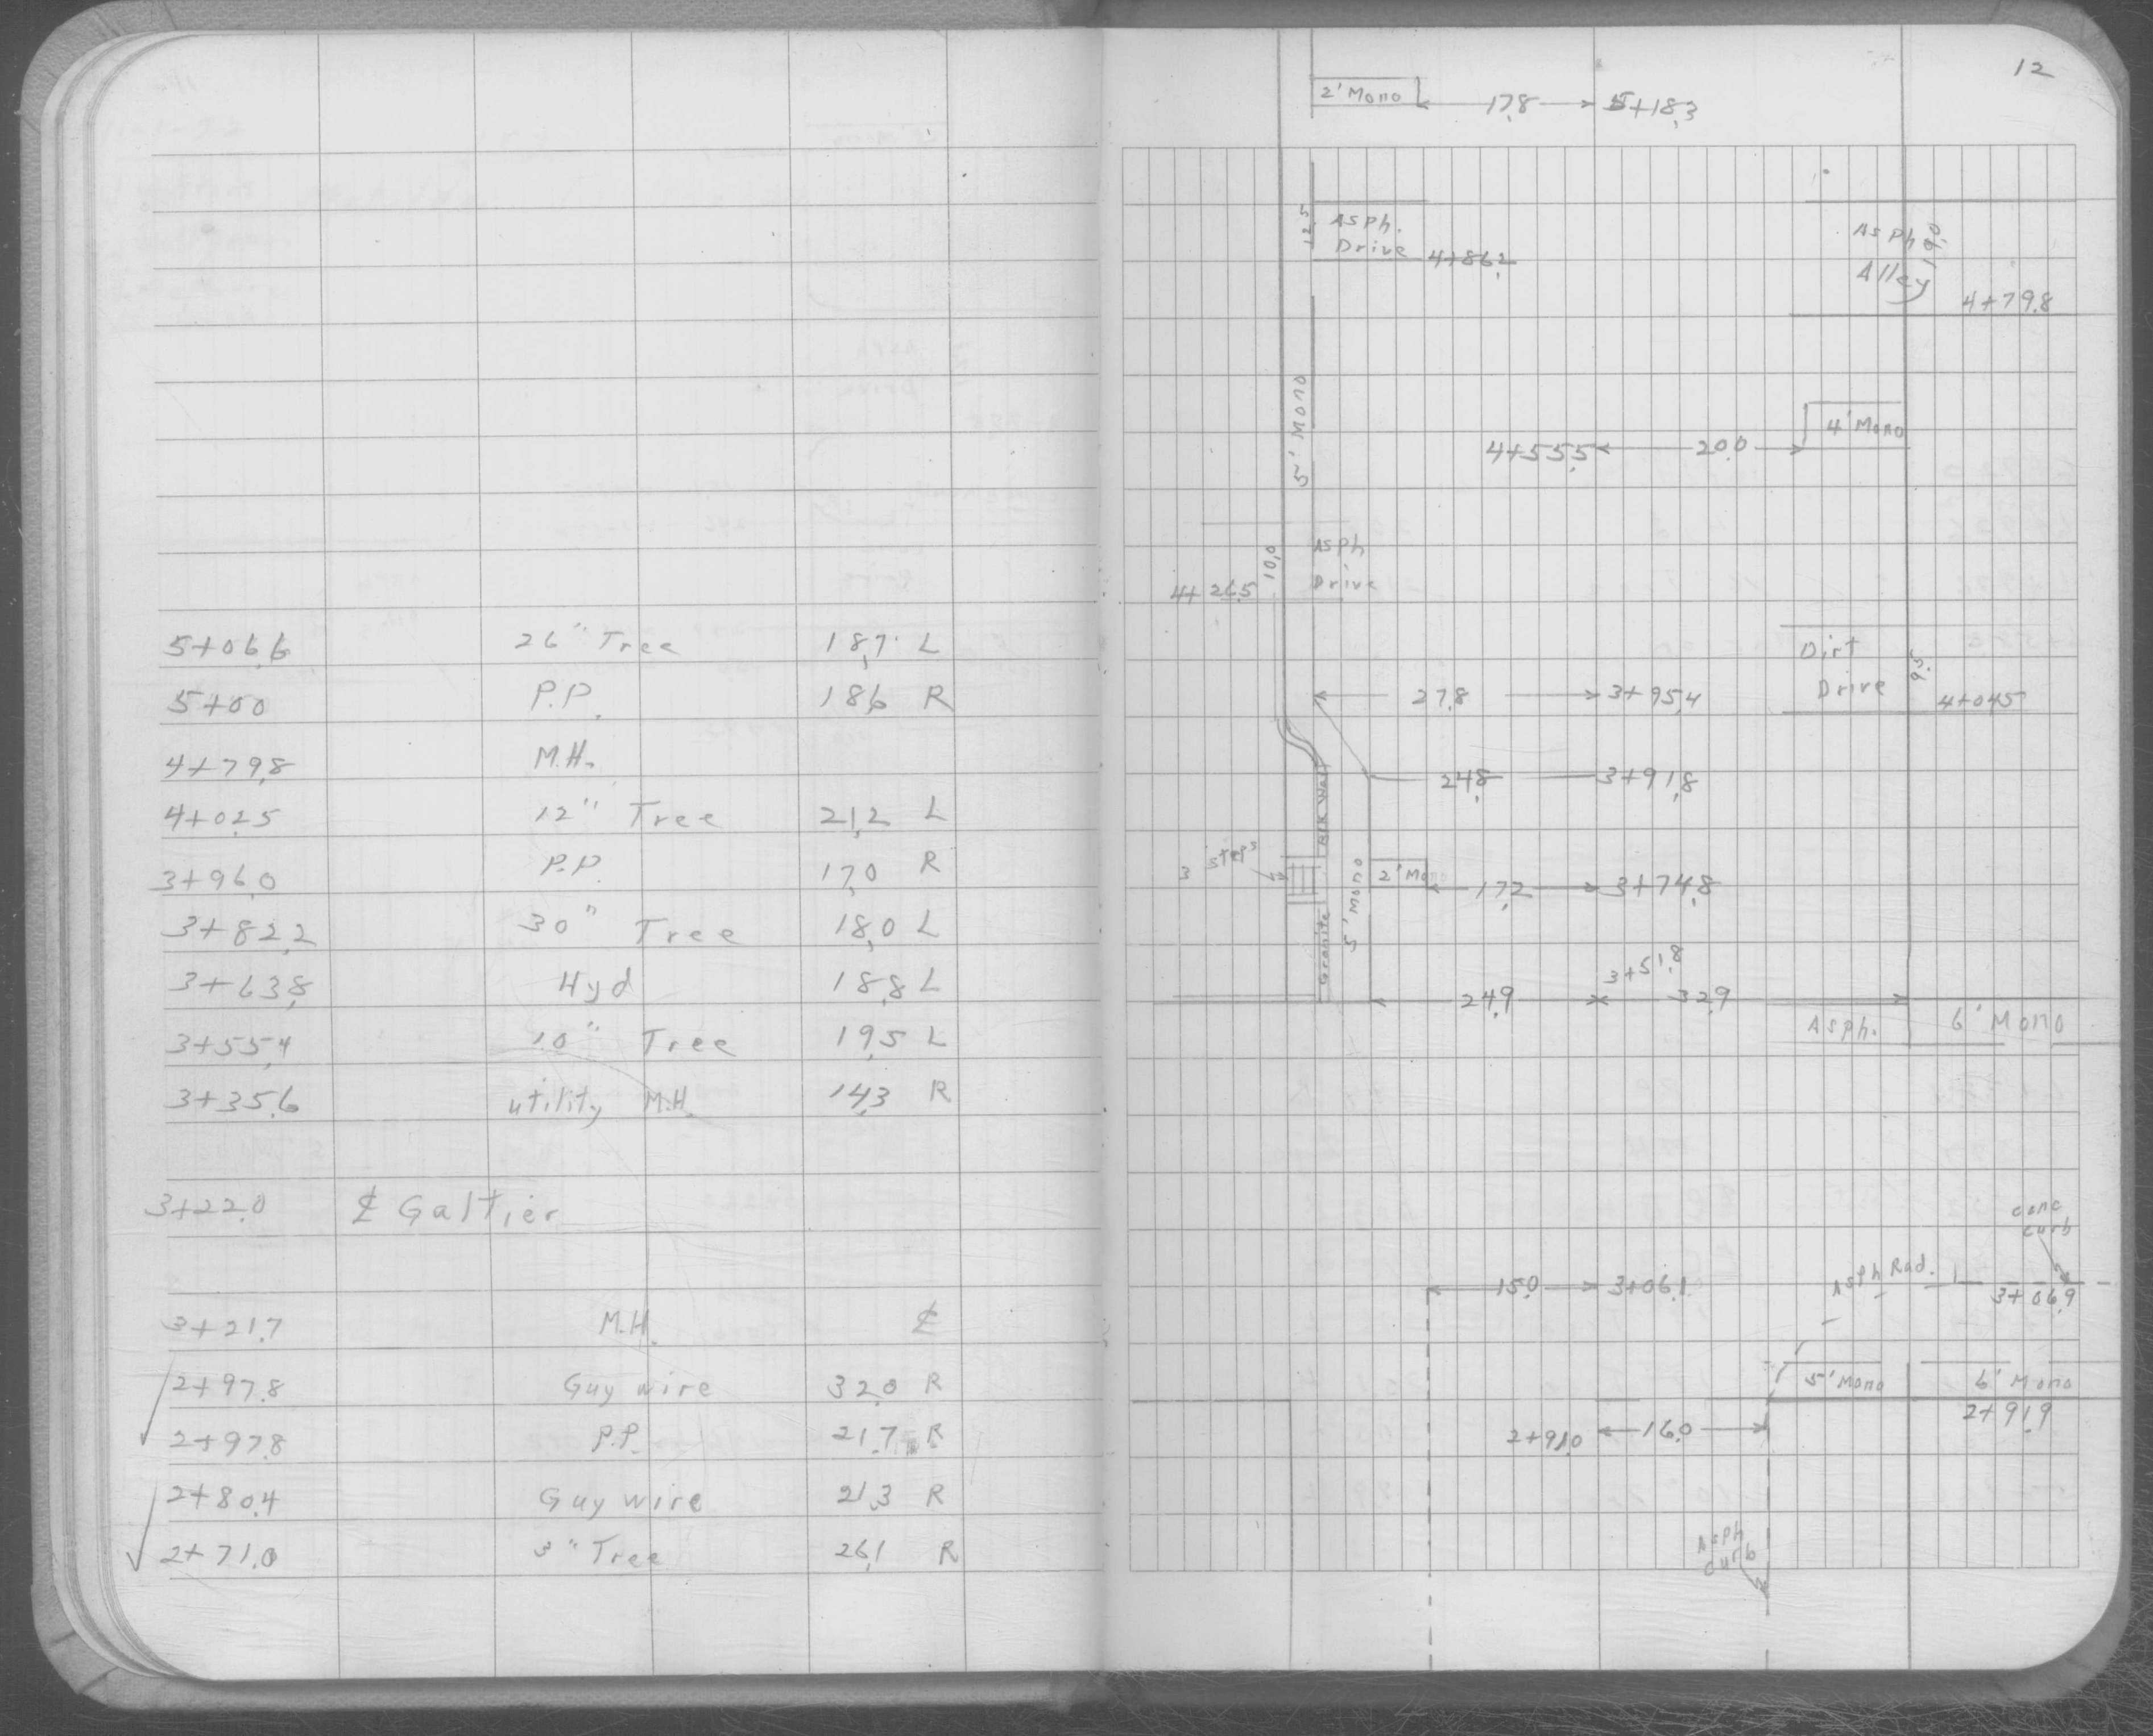 5+06.6 26" Tree 18.7 L
5+00 P.P. 18.6 R
4+79.8 M.H.
4+02.5 12" Tree 21.2 L
3+96.0 P.P. 17.0 R
3+82.2 30" Tree 18.0 L
3+63.8 Hyd 18.8 L
3+55.4 10" Tree 19.5 L
3+35.6 utility M.H. 14.3 R
3+22.0 ℄ Galtier
3+21.7 M.H. ℄
2+97.8 Guy wire 32.0 R
2+97.8 P.P. 21.7 R
2+80.4 Guy wire 21.3 R
2+71.0 3" Tree 26.1 R
12
2' Mono 17.8 5+18.3
12.5 Asph.
Drive 4+86.2
Asph 19.0
Alley
4+79.8
5' Mono
4' Mono
4+55.5 20.0
10.0 Asph
4+26.5 Drive
Dirt
Drive 9.5
4+04.5
27.8 3+95.4
24.8 3+91.8
Blk Wall
3 steps
5' Mono
2' Mono 17.2 3+74.8
Granite
3+51.8
24.9 32.9
Asph. 6' Mono
conc
curb
Asph Rad.
15.0 3+06.1
3+06.9
5' Mono 6' Mono
2+91.9
2+91.0 16.0
Asph
curb